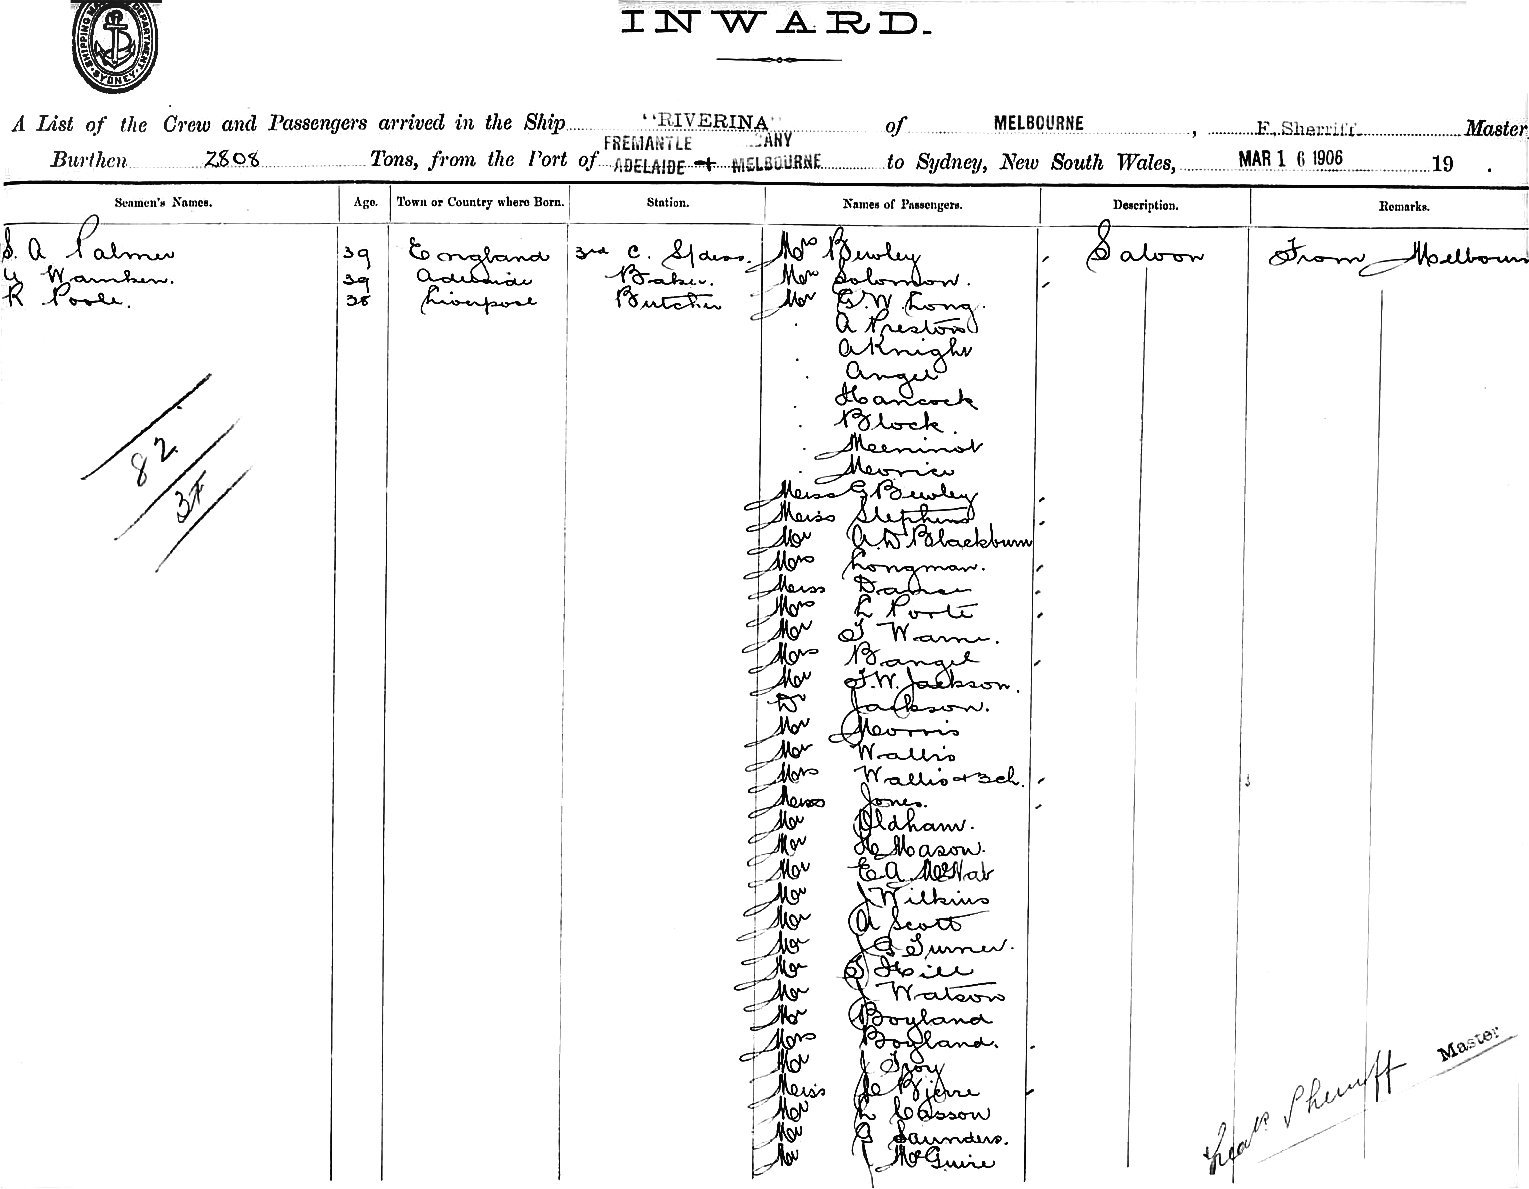 SHIPPING MASTER'S DEPARTMENT. SYDNEY.
INWARD.
A List of the Crew and Passengers arrived in the Ship "RIVERINA" of MELBOURNE, F. Sherriff. Master
FREMANTLE ANY
Burthen 2808 Tons, from the Port of ADELAIDE + MELBOURNE to Sydney, New South Wales, MAR 16 1906 19 .
Seamen's Names. Age. Town or Country where Born. Station. Names of Passengers. Description. Remarks.
S. A Palmer 39 England 3rd C. Mrs Bewley Saloon From Melbourn
Warnken. 39 Adelaide Baker. Mr Solomon.
R Poole. 38 Liverpool Butcher Mr G. W. Long.
A Preston
A Knight
Angel
Hancock
Block.
Morrice
Miss G Bewley
Miss Stephens
Mr A. D Blackburn
Mrs Longman.
Miss
Mrs L Porte
Mr T Warne.
Mrs Bangel
Mr F. W. Jackson.
Dr Jackson.
Mr Morris
Mr Wallis
Mrs Wallis + 3 ch.
Miss Jones.
Mr Oldham.
Mr H Mason.
Mr E A McNab
Mr J Wilkins
Mr A Scott
Mr G Turner.
Mr T Hill
Mr J Watson
Mr Boyland
Mrs Boyland.
Mr J Troy
Miss Bjerre
Mr L Casson
Mr G Saunders.
Mr J McGuire
82
37
Sherriff Master